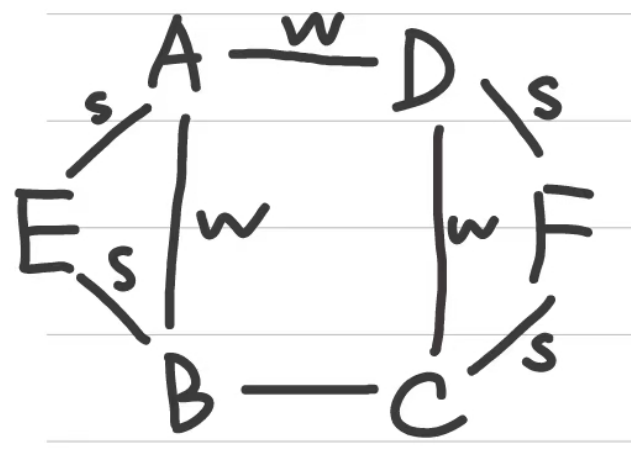 A W D
S S
E W W F
S S
B C